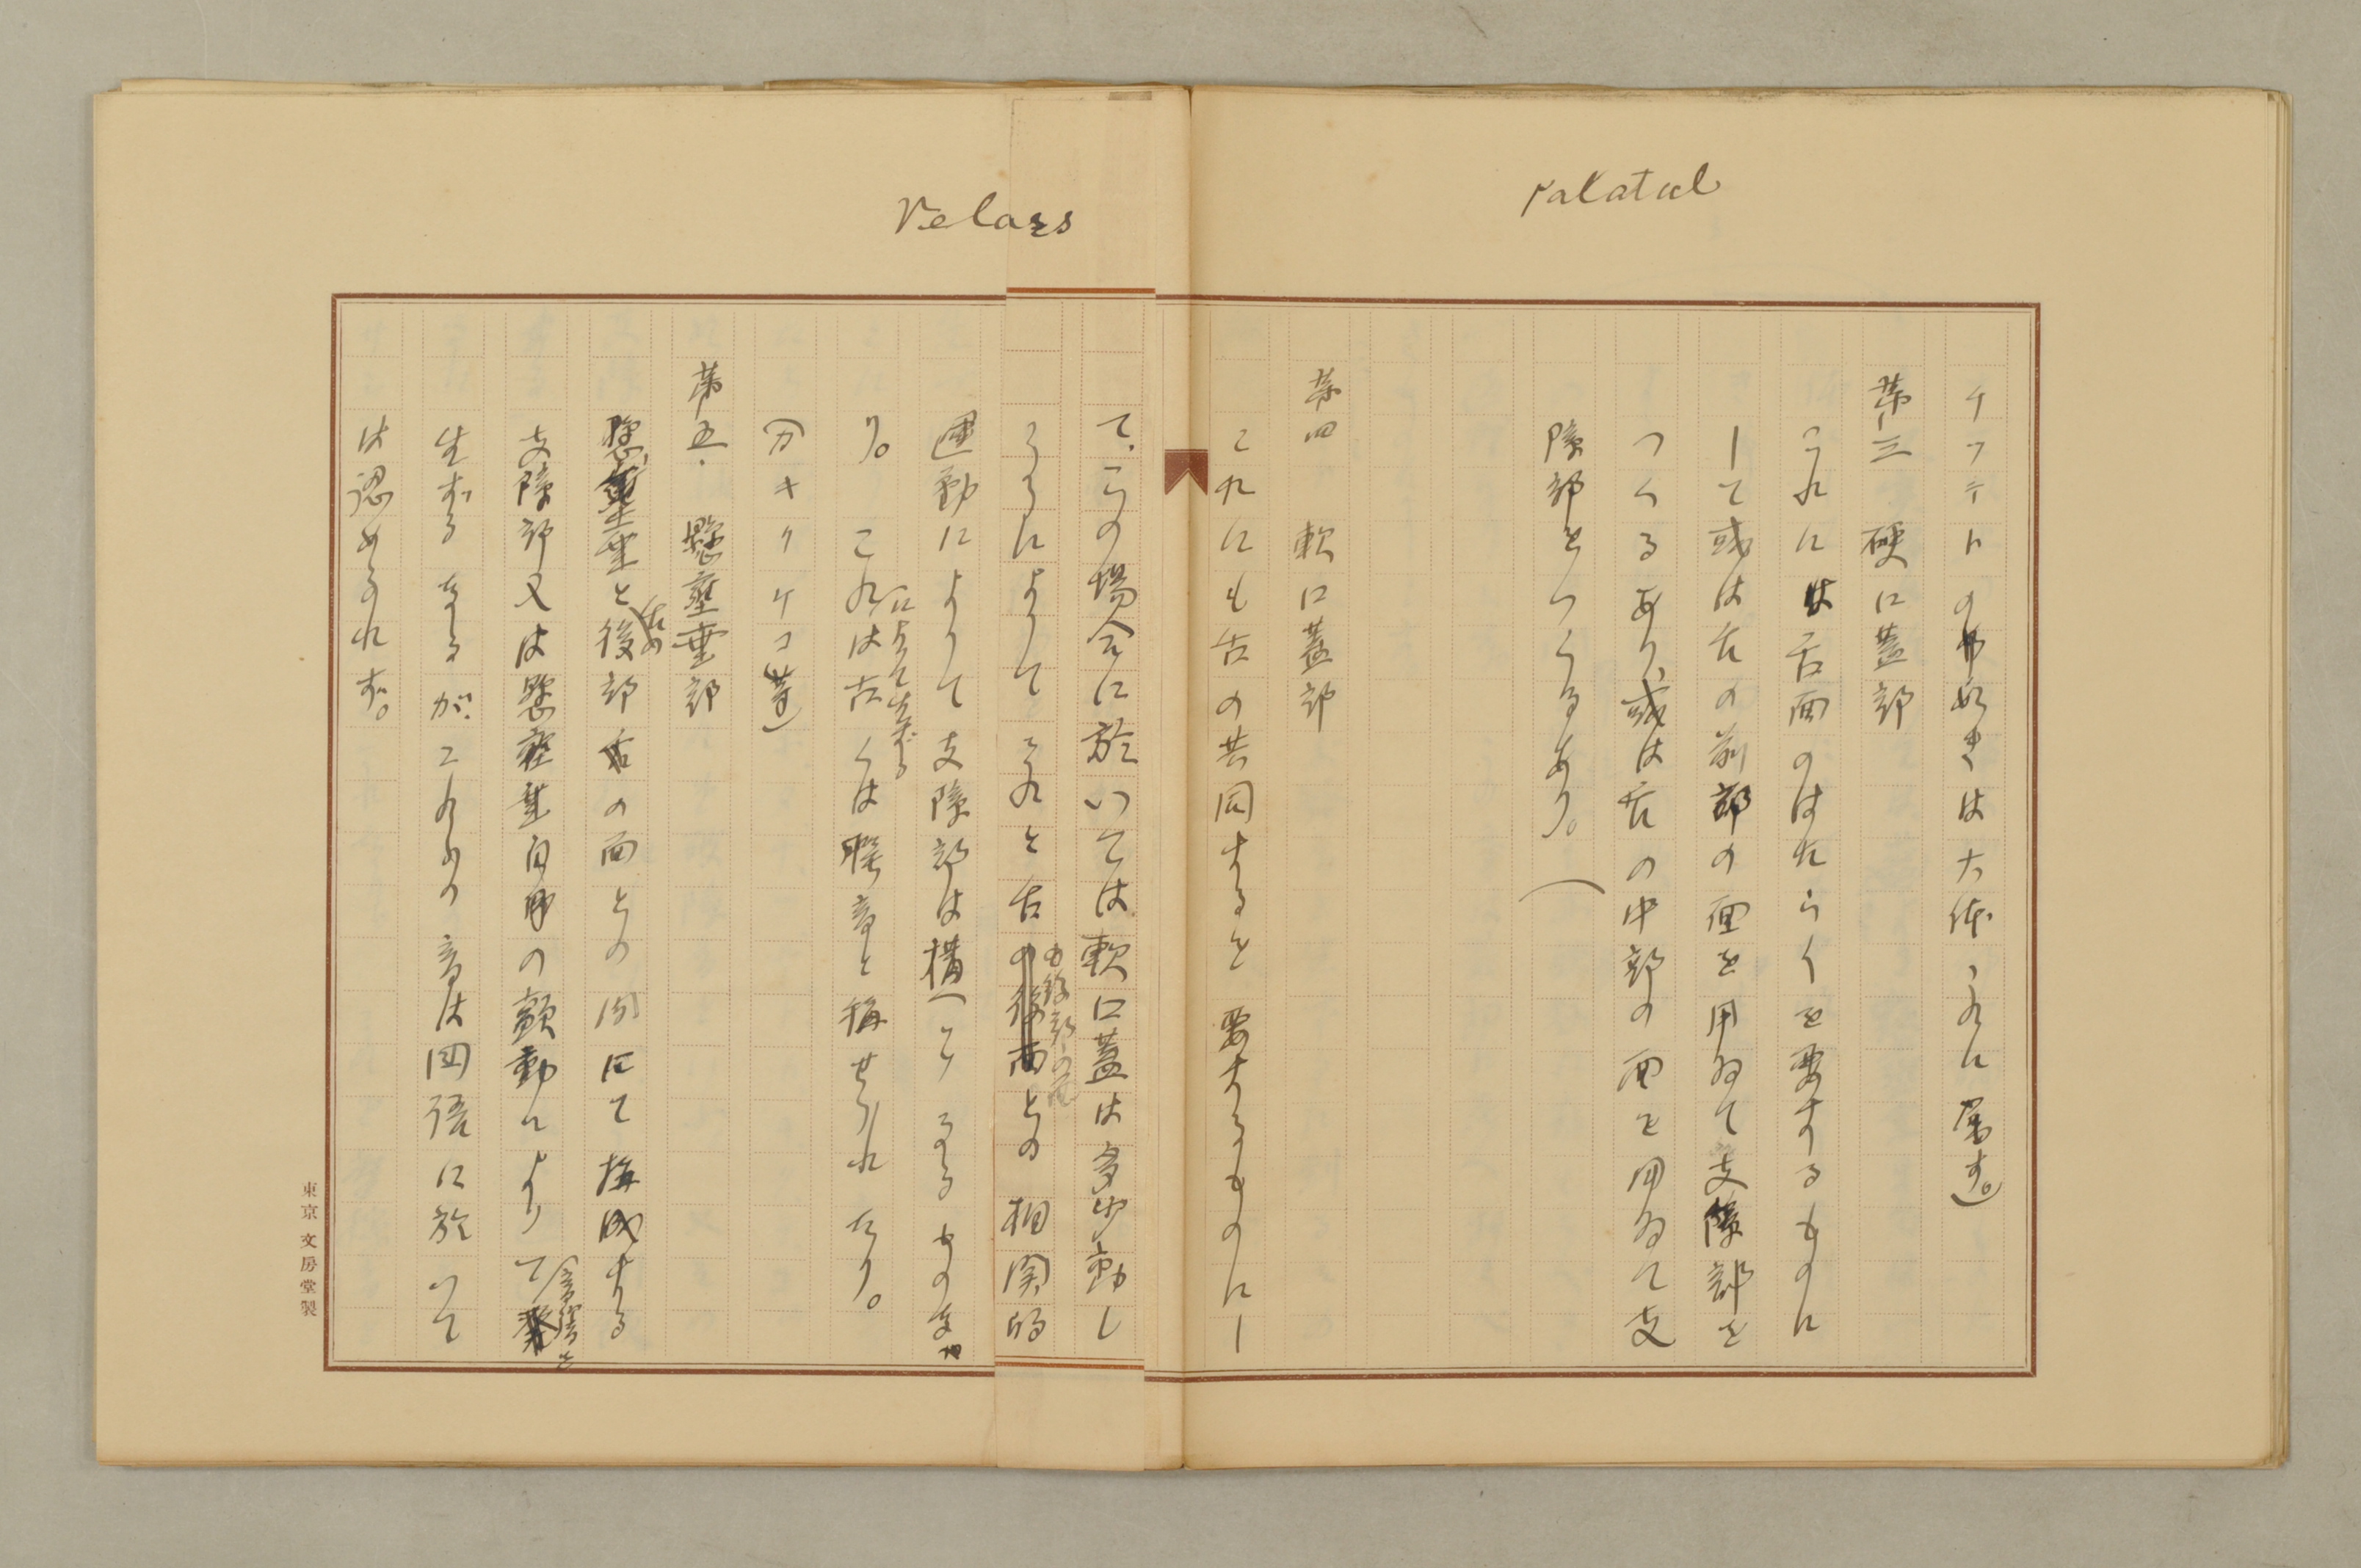 Palatal
チツテトの如きは大体これに属す。)
第三 硬口蓋部
これには舌面のはたらくを要するものに
して或は舌の前部の面を用ゐて支障部を
つくるあり、或は舌の中部の面を用ゐて支
障部をつくるあり。
第四 軟口蓋部
これにも舌の共同するを要するものにし
Velars
て、この場合に於いては軟口蓋は多少動し
うるによりてこれと舌の後面との相関的
の後部の面
運動によりて支障部は構へらるるものな
り。これは古くは腭音と称せられたり。
によりて生ずる
(カキクケコ等)
第五、懸壅垂部
懸壅垂と後部舌の面との間にて構成する
舌の
支障部又は懸壅垂自身の顫動によりて
音響を
生ずるなるが、これらの音は国語に於いて
は認められず。
東京文房堂製